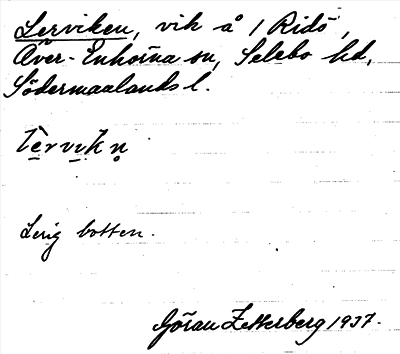 Lerviken, vik å / Ridö,
Över-Enhörna sn, Selebo hd,
Södermanlands l.
lèrvikn̥
Lerig botten.
Göran Zetterberg 1937.